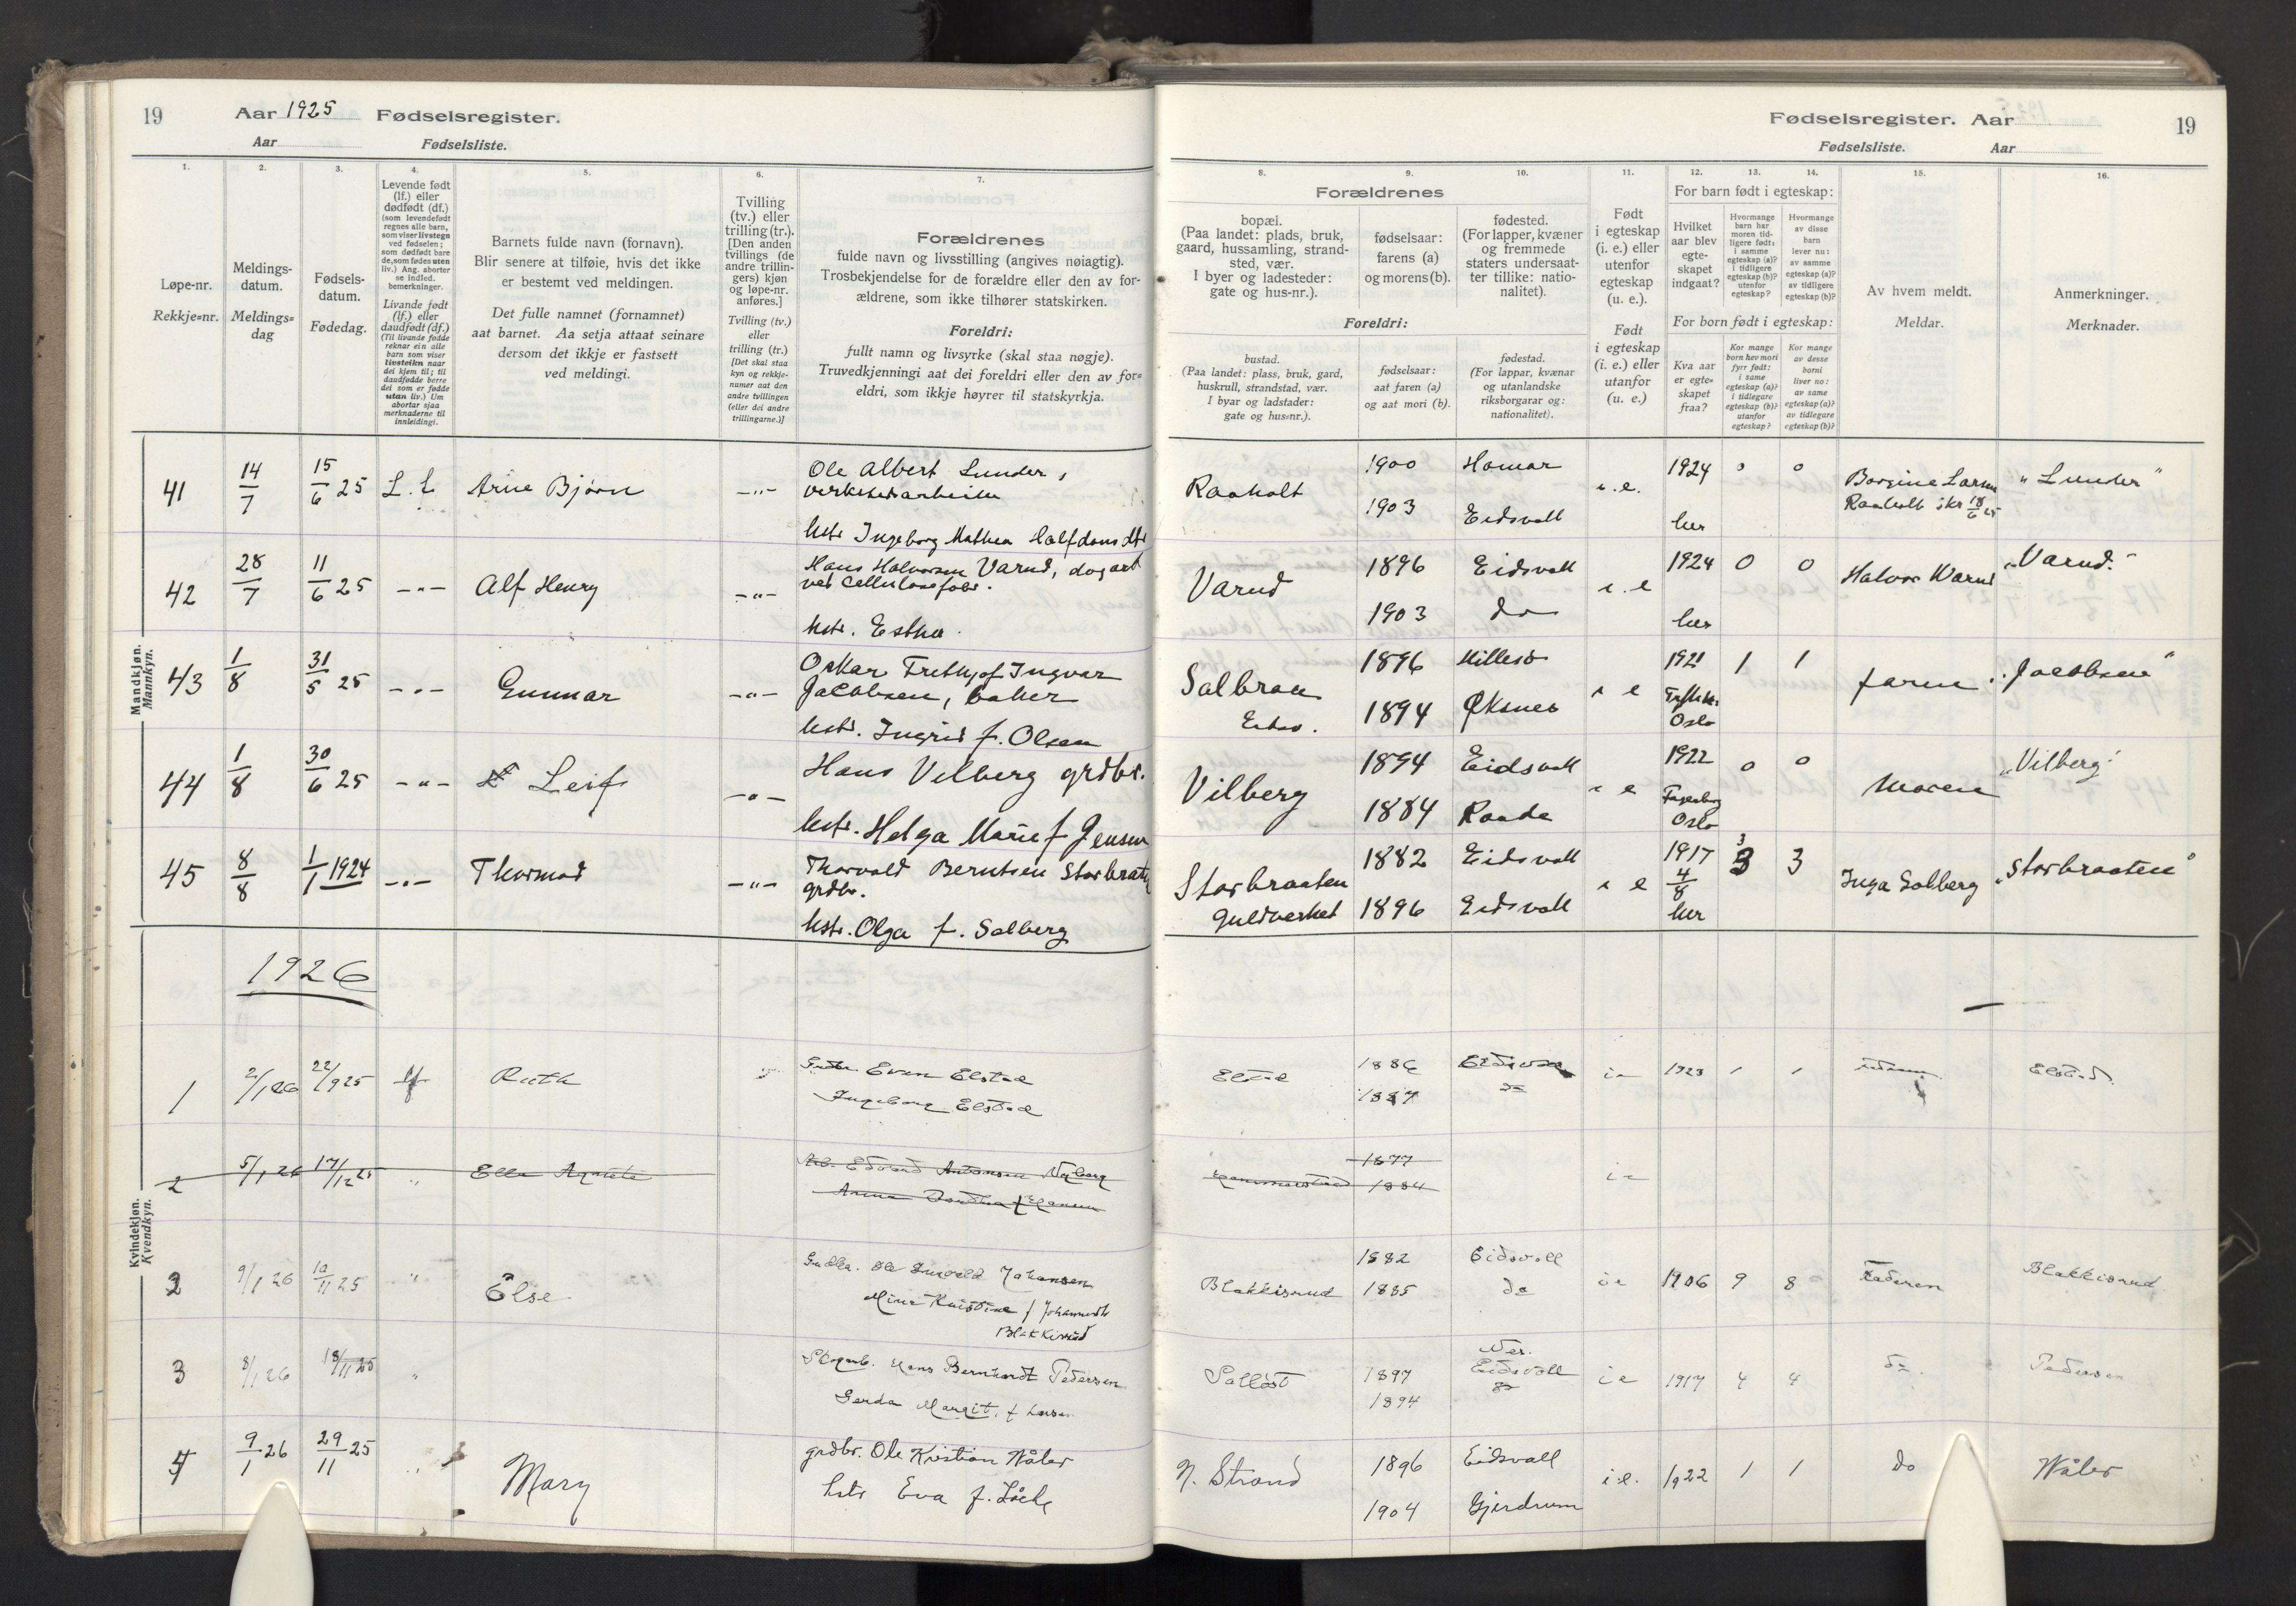 19
Aar 1925 Fødselsregister.
Aar Fødselsliste.
Fødselsregister. Aar
Fødselsliste. Aar
19
1. 2. 3. 4. 5. 6. 7.
Løpe-nr.
Rekkje-nr.
Meldings-
datum.
Meldings-
dag
Fødsels-
datum.
Fødedag.
Levende født
(lf.) eller
dødfødt (df.)
(som levendefødt
regnes alle barn,
som viser livstegn
ved fødselen;
som dødfødt bare
de, som fødes uten
liv.) Ang. aborter
se indled.
bemerkninger.
Livande født
(lf.) eller
daudfødt (df.)
(Til livande fødde
reknar ein alle
barn som viser
livsteikn naar
dei kjem til; til
daudfødde berre
dei som er fødde
utan liv.) Um
abortar sjaa
merknaderne til
innleidingi.
Barnets fulde navn (fornavn).
Blir senere at tilføie, hvis det ikke
er bestemt ved meldingen.
Det fulle namnet (fornamnet)
aat barnet. Aa setja attaat seinare
dersom det ikkje er fastsett
ved meldingi.
Tvilling
(tv.) eller
trilling (tr.).
[Den anden
tvillings (de
andre trillin-
gers) kjøn
og løpe-nr.
anføres.]
Tvilling (tv.)
eller
trilling (tr.)
[Det skal staa
kyn og rekkje-
numer aat den
andre tvillingen
(eller dei andre
trillingarne.)]
Forældrenes
fulde navn og livsstilling (angives nøiagtig).
Trosbekjendelse for de forældre eller den av for-
ældrene, som ikke tilhører statskirken.
Foreldri:
fullt namn og livsyrke (skal staa nøgje).
Truvedkjenningi aat dei foreldri eller den av for-
eldri, som ikkje høyrer til statskyrkja.
8. 9. 10. 11. 12. 13. 14. 15. 16.
Forældrenes
bopæl.
(Paa landet: plads, bruk,
gaard, hussamling, strand-
sted, vær.
I byer og ladesteder:
gate og hus-nr.).
fødselsaar:
farens (a)
og morens (b).
fødested.
(For lapper, kvæner
og fremmede
staters undersaat-
ter tillike: natio-
nalitet).
Foreldri:
bustad.
(Paa landet: plass, bruk, gard,
huskrull, strandstad, vær.
I byar og ladstader:
gate og hus-nr.).
fødselsaar:
aat faren (a)
og aat mori (b).
fødestad.
(For lappar, kvænar
og utanlandske
riksborgarar og:
nationalitet).
Født
i egteskap
(i. e.) eller
utenfor
egteskap
(u. e.).
Født
i egteskap
(i. e.) eller
utanfor
(u. e.)
For barn født i egteskap:
Hvilket
aar blev
egte-
skapet
indgaat?
Hvormange
barn har
moren tid-
ligere født:
i samme
egteskap (a)?
i tidligere
egteskap (b)?
utenfor
egteskap?
Hvormange
av disse
barn
lever nu:
av samme
egteskap (a)?
av tidligere
egteskap (b)?
For born født i egteskap:
Kva aar
er egte-
skapet
fraa?
Kor mange
born hev mori
fyrr født:
i same
egteskap (a)?
i tidlegare
egteskap (b)?
utanfor
egteskap?
Kor mange
av desse
borni
liver no:
av same
egteskap (a)?
av tidlegare
egteskap (b)?
Av hvem meldt.
Meldar.
Anmerkninger.
Merknader.
Mandkjøn.
Mannkyn.
41 14/7 15/6 25 L. f. Arne Bjørn -"- Ole Albert Lunder,
Raaholt 1900 Hamar i.e. 1924 0 0 "Lunder"
Raaholt 18/6 25
hstr. Ingeborg Mathea Halfdansdtr
1903 Eidsvoll her
42 28/7 11/6 25 -"- Alf Henry -"- Hans Halvorsen Varud, dagarb
ved Cellulosefabr.
hstr. Esther
Varud 1896 Eidsvoll i.e 1924 0 0 Halvor Warud "Varud."
1903 do her
43 1/8 31/5 25 -"- Gunnar -"- Oskar Frithjof Ingvar
Jacobsen, baker
hstr. Ingrid f. Olsen
1896 Hillesø i e 1921 1 1 faren "Jacobsen"
1894 Øksnes Oslo
44 1/8 30/6 25 -"- Leif -"- Hans Vilberg grdbr.
hstr. Helga Marie f Jensen
Vilberg 1894 Eidsvoll i e 1922 0 0 moren "Vilberg"
1884 Raade Fagerborg
Oslo
45 8/8 1/1 1924 -"- Thormod -"- Thorvald Berntsen Storbraaten
grdbr.
hstr. Olga f. Solberg
Storbraaten 1882 Eidsvoll i e 1917 3 3 Inga Solberg "Storbraaten"
Guldverket 1896 Eidsvoll 4/8
her
1926
Kvindekjøn.
Kvendkyn.
1 2/1 26 22/9 25 lf Ruth Even Elstad
Ingeborg Elstad
Elstad 1886 Eidsvoll ie 1923 1 1 Elstad.
1887 do
2 5/1 26 17/12 25 " Ella Agnete Arb. Edvard Antonsen Nyborg
Anna Dorthea f Hansen
1877 ie
1884
2 9/1 26 10/11 25 " Else Ole Ingvald Johansen
Mina Kristine f Johannesdtr
Blakkisrud
Blakkisrud 1882 Eidsvoll ie 1906 9 8 Faderen Blakkisrud
1885 do
3 8/1 26 18/11 25 " Skogarb. Hans Bernhardt Pedersen
Gerda Margit, f Larsen
1897 Eidsvoll ie 1917 4 4 do. Pedersen
1894 do
4 9/1 26 29/11 25 " Mary grdbr. Ole Kristian Wåler
hstr Eva f. Løche
N. Strand 1896 Eidsvoll i.e. 1922 1 1 do Wåler
1904 Gjerdrum